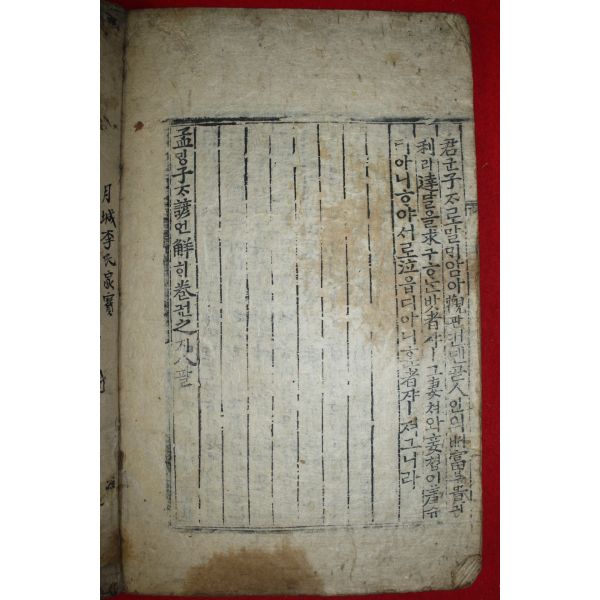 君군子ᄌᆞ로말ᄆᆡ암아觀관컨덴곧人인의ᄡᅥ富부貴귀
利리達달을求구ᄒᆞᄂᆞᆫ바者쟈ㅣ그妻쳐와妾쳡이羞슈
티아니ᄒᆞ야서로泣읍디아니ᄒᆞᆯ者쟈ㅣ져그니라
孟ᄆᆡᆼ子ᄌᆞ諺언解ᄒᆡ卷권之지八팔
月城李氏家寶